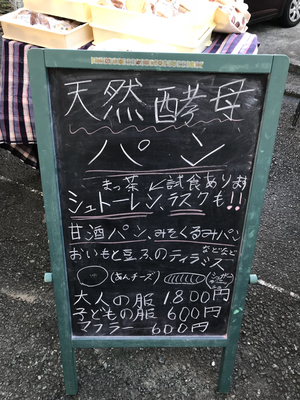 天然酵母
パン
まっ茶 ↙試食あります
シュトーレン、ラスクも!!
甘酒パン、みそくるみパン
おいもと豆ふのティラミス などなど
(あんチーズ) (シュガー
大人の服 1800円
子どもの服 600円
マフラー 600円